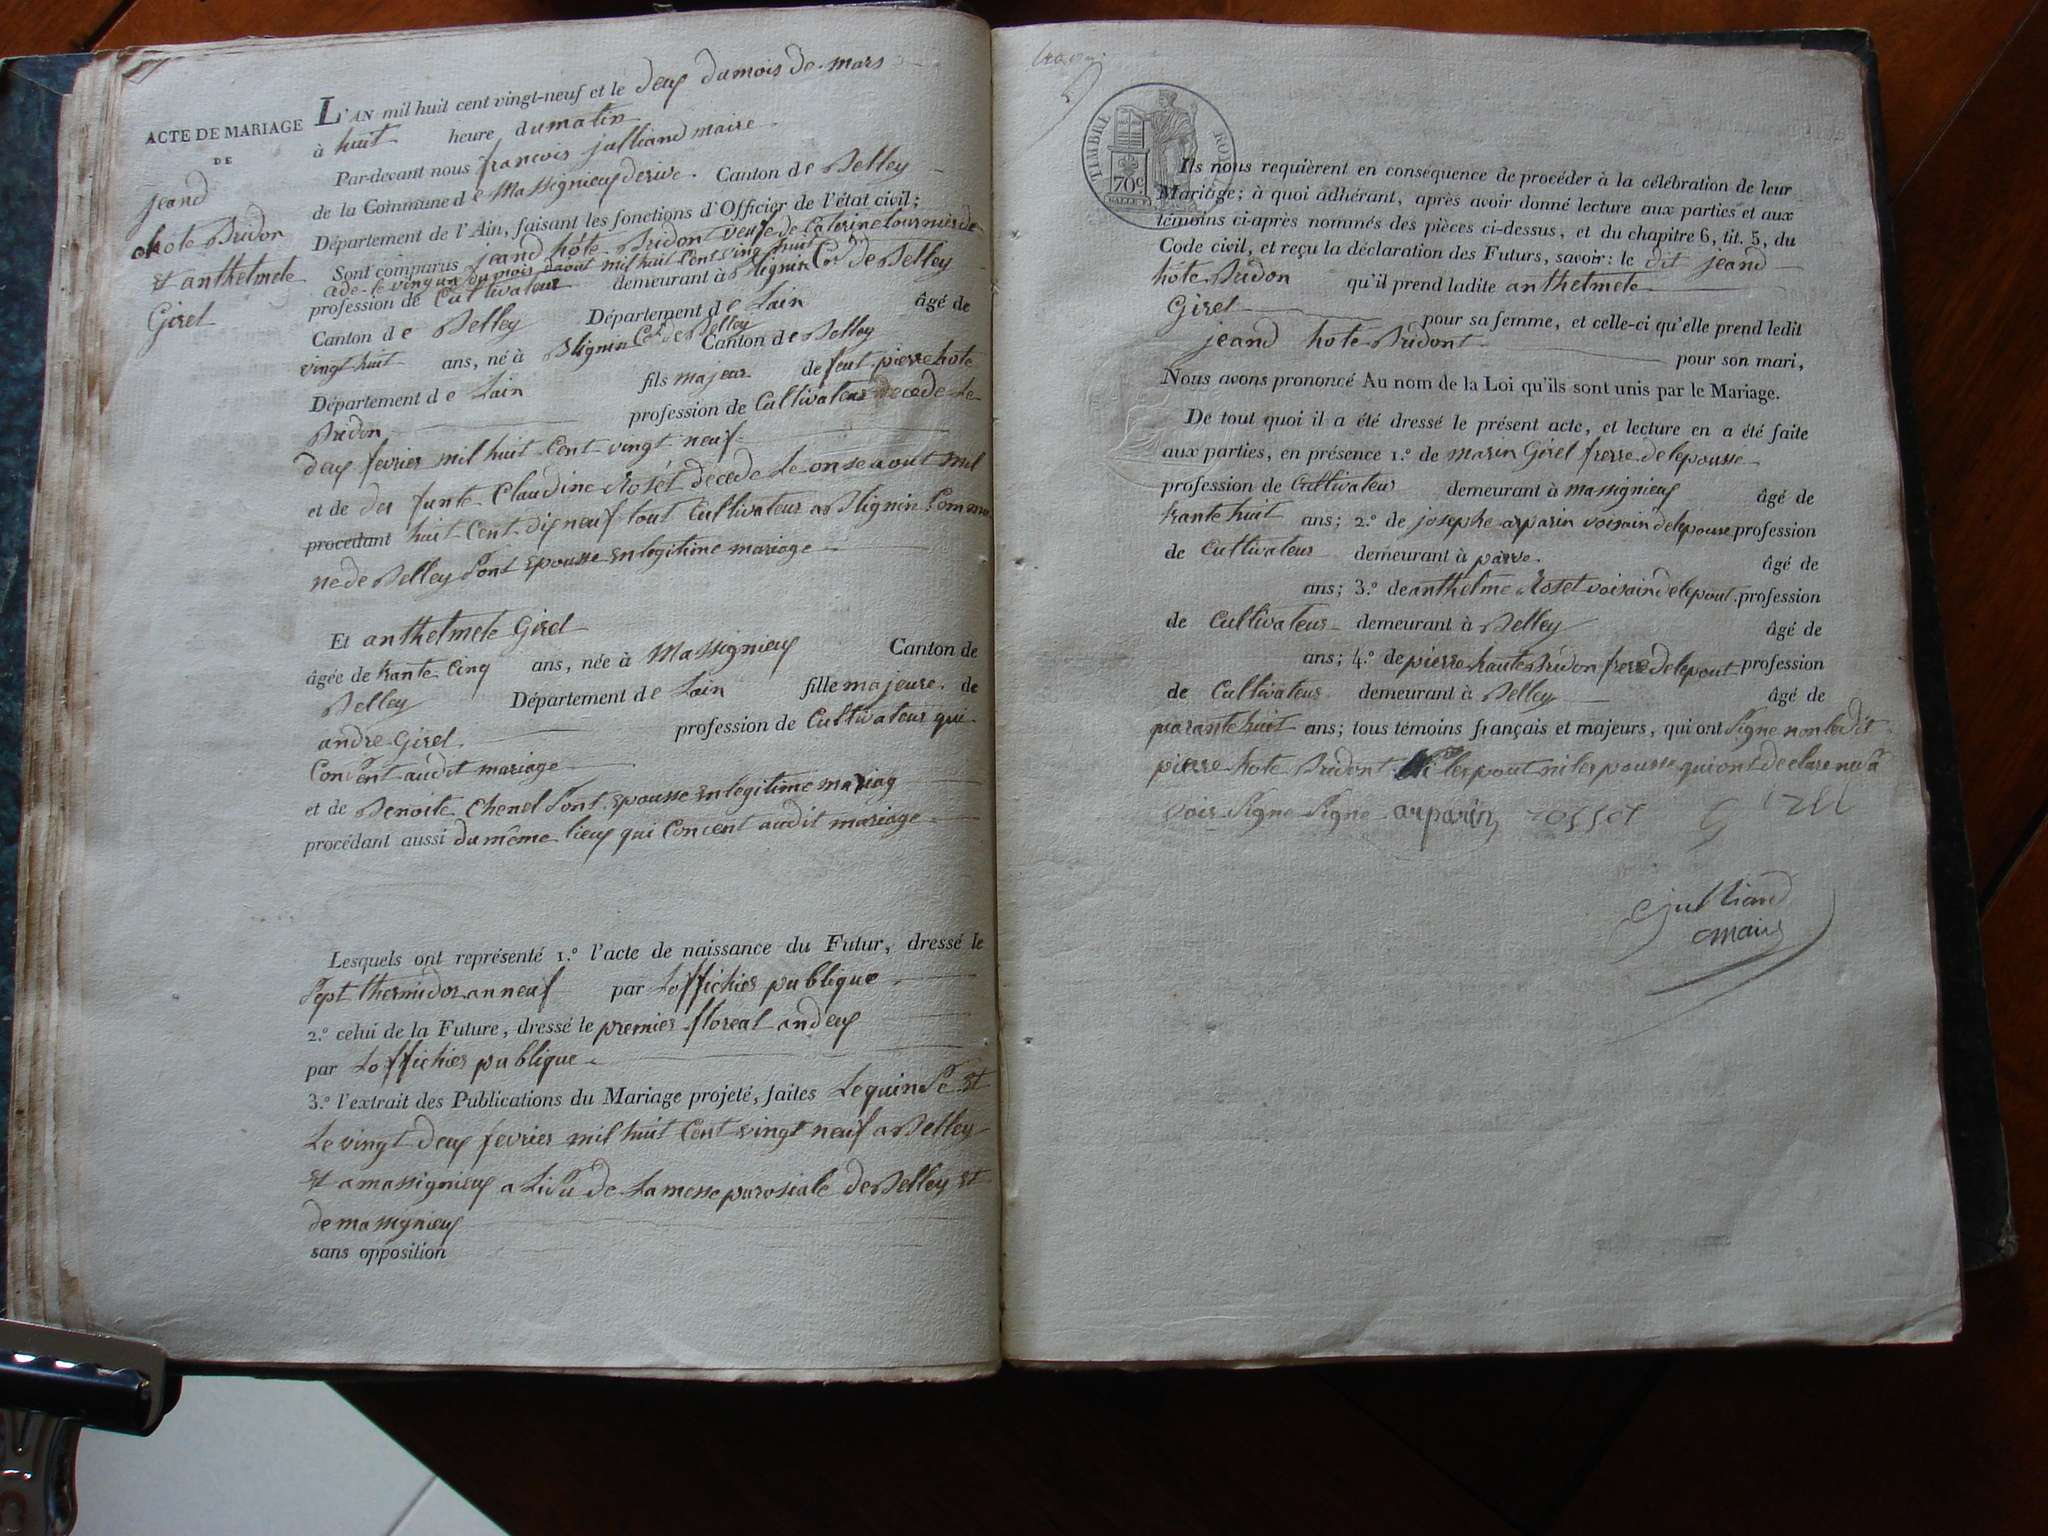 ACTE DE MARIAGE
DE
jeand
hote Bridon
Et anthelmete
Girel
L'AN mil huit cent vingt-neuf et le deux du mois de mars
à huit heure du matin
Par-devant nous francois julliand maire
de la Commune de Massignieux de rive. Canton de Belley
Département de l'Ain, faisant les fonctions d'Officier de l'état civil;
Sont comparus jeand hôte Bridon veufe de Caterine tournier de
cede le vingt un du mois daout mil huit cent ving huit
profession de Cultivateur demeurant à Blignin Con de Belley
Canton de Belley Département de Lain âgé de
vingt huit ans, né à Blignin Con de Belley Canton de Belley
Département de Lain fils majeur de feut pierre hote
Bridon profession de Cultivateur decede le
deux fevrier mil huit cent vingt neuf
et de defunte Claudine Roset decede le onse aout mil
procédant huit Cent dix neuf tout Cultivateur a Blignin Commu
ne de Belley sont Epousse en legitime mariage
Et anthelmete Girel
âgée de trante cinq ans, née à Massignieux Canton de
Belley Département de Lain fille majeure. de
andre Girel. profession de Cultivateur qui
Concent audit mariage
et de Benoite Chenel sont Epousse en legitime mariag
procédant aussi du même lieux qui Concent audit mariage
Lesquels ont représenté 1.º l'acte de naissance du Futur, dressé le
sept thermidor an neuf par Loffichier publique
2.º celui de la Future, dressé le premier floreal an deux
par Loffichier publique
3.º l'extrait des Publications du Mariage projeté, faites Le quinse Et
Le vingt deux fevrier mil huit Cent vingt neuf a Belley
Et a massignieux a Lisu de La messe parosiale de Belley Et
de massignieux
sans opposition
TIMBRE ROYAL
70c
Ils nous requièrent en conséquence de procéder à la célébration de leur
Mariage; à quoi adhérant, après avoir donné lecture aux parties et aux
témoins ci-après nommés des pièces ci-dessus, et du chapitre 6, tit. 5, du
Code civil, et reçu la déclaration des Futurs, savoir: le dit jeand
hôte Bridon qu'il prend ladite anthelmete
Girel pour sa femme, et celle-ci qu'elle prend ledit
jeand hote Bridont pour son mari,
Nous avons prononcé Au nom de la Loi qu'ils sont unis par le Mariage.
De tout quoi il a été dressé le présent acte, et lecture en a été faite
aux parties, en présence 1.º de marin Girel frerre de lepousse
profession de Cultivateur demeurant à massignieux âgé de
trante huit ans; 2.º de josephe arparin voisain de lepouse profession
de Cultivateur demeurant à parve. âgé de
ans; 3.º de anthelme Roset voisain de lepout. profession
de Cultivateur demeurant à Belley âgé de
ans; 4.º de pierre haute Bridon frere de lepout profession
de Cultivateur demeurant à Belley âgé de
quarante huit ans; tous témoins français et majeurs, qui ont signe non ledit
pierre hote Bridont Ni lespout ni les pousse qui ont declare ne sa
voir signe signe arparin rosset Girel
julliand
maire